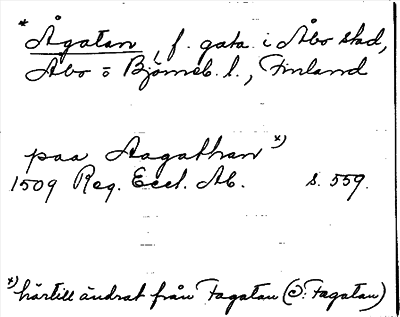 * Ågatan, f. gata i Åbo stad,
Åbo o Björneb. l., Finland
paa Aagathan *)
1509 Reg. Eccl. Ab. s. 559.
*) härtill ändrat från Fagatan (ɔ: Fagatan)